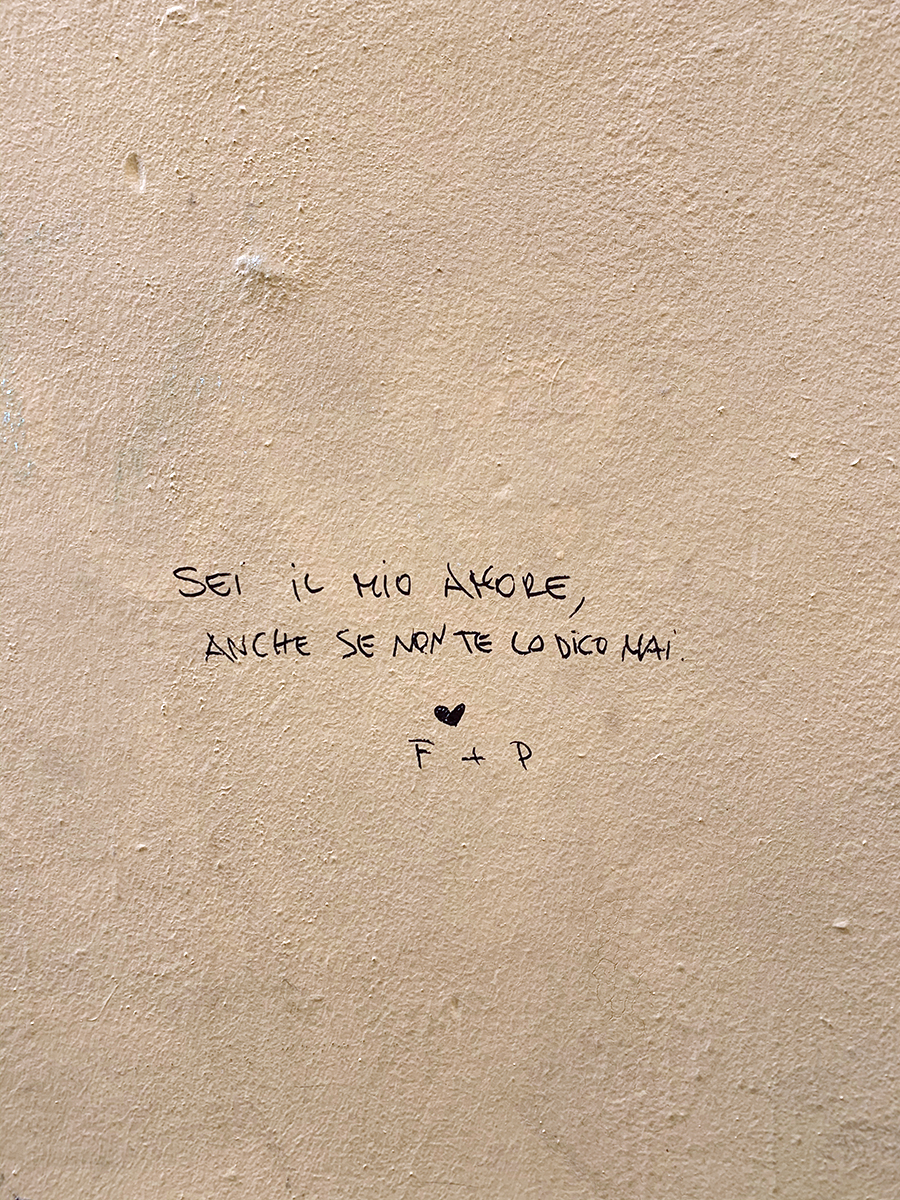 SEI IL MIO AMORE,
ANCHE SE NON TE LO DICO MAI.
♥
F + P